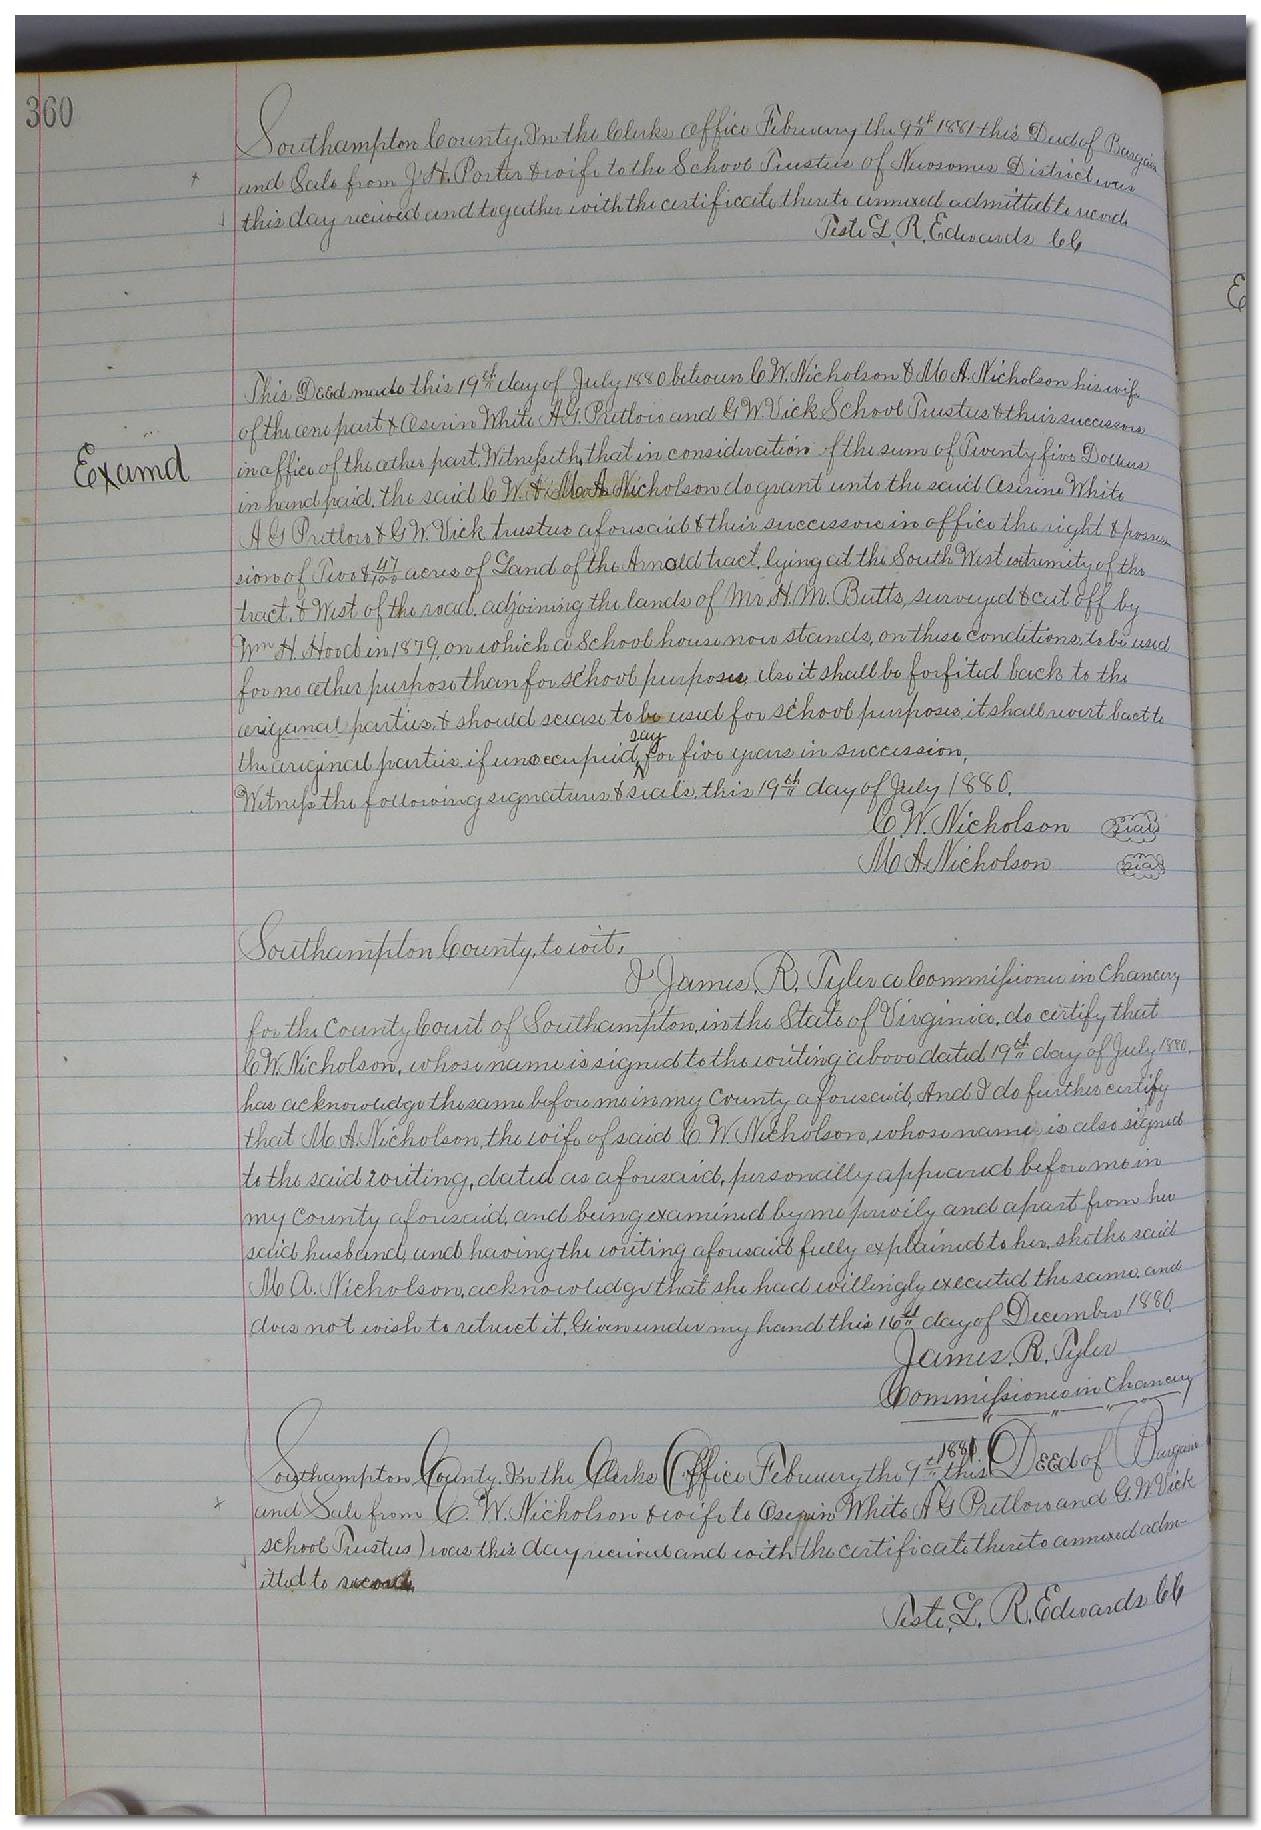 360
Southampton County. In the Clerks office February the 9th 1881 this Deed of Bargain
and Sale from J. H. Porter & wife to the School Trustees of Newsomes District was
this day received and together with the certificate thereto annexed admitted to record
Teste L. R. Edwards CC
E
This Deed made this 19th day of July 1880 between C W. Nicholson & M. A. Nicholson his wife
of the one part & White A. G. Pretlow and G W. Vick School Trustees & their successors
Examd
in office of the other part. Witnesseth, that in consideration of the sum of Twenty five Dollars
in hand paid. the said C W. & M. A. Nicholson do grant unto the said White
A G Pretlow & G W. Vick trustees aforesaid & their successors in office the right & posses-
sion of Two & 47/100 acres of Land of the Arnold tract, lying at the South West extremity of the
tract. & West of the road. adjoining the lands of Mr. H. M. Butts, surveyed & cut off by
Wm H. Hood in 1879, on which a School house now stands, on these conditions, to be used
for no other purpose than for school purposes, else it shall be forfited back to the
origanal parties. & should scease to be used for school purposes, it shall revert bact to
the original parties if unoccupied, say for five years in succession,
Witness the following signatures & seals. this 19th day of July 1880.
C. W. Nicholson seal
M A. Nicholson seal
Southampton County, to wit:
I James. R. Tyler a Commissioner in Chancery
for the County Court of Southampton, in the State of Virginia, do certify that
C W. Nicholson, whose name is signed to the writing above dated 19th day of July 1880.
has acknowledge the same before me in my County aforesaid, And I do further certify
that M A. Nicholson, the wife of said C W. Nicholson, whose name is also signed
to the said writing, dated as aforesaid, personally appeared before me in
my county aforesaid, and being examined by me privily and apart from her
said husband, and having the writing aforesaid fully explained to her, she the said
M A. Nicholson, acknowledge that she had willingly executed the same, and
does not wish to retract it, Given under my hand this 16th day of December 1880.
James. R. Tyler
Commissioner in Chancery
Southampton County. In the Clerks Office February the 9th 1881 this (Deed of Bargain
and Sale from C. W. Nicholson & wife to White A G Pretlow and G. W Vick
school Trustees) was this day received and with the certificate thereto annexed adm-
itted to record.
Teste, L. R. Edwards CC